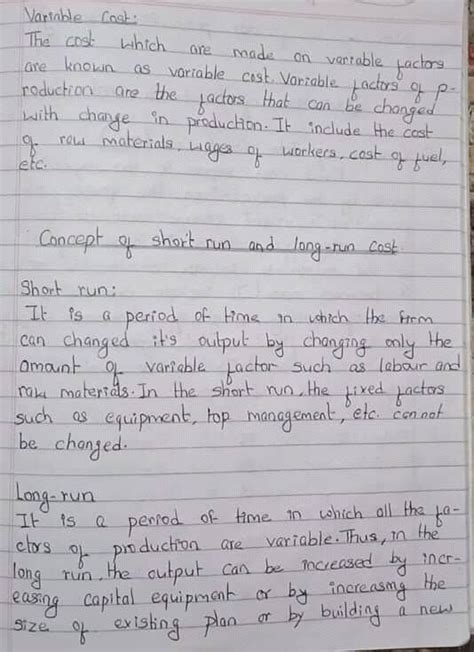 Variable Cost:
The cost which are made on variable factors
are known as variable cost. Variable factors of p-
roduction are the factors that can be changed
with change in production. It include the cost
of raw materials, wages of workers, cost of fuel,
etc.
Concept of short run and long-run cost.
Short run:
It is a period of time in which the firm
can changed it's output by changing only the
amount of variable factor such as labour and
raw materials. In the short run, the fixed factors
such as equipment, top management, etc. cannot
be changed.
Long-run
It is a period of time in which all the fa-
ctors of production are variable. Thus, in the
long run, the output can be increased by incr-
easing capital equipment or by increasing the
size of existing plan or by building a new